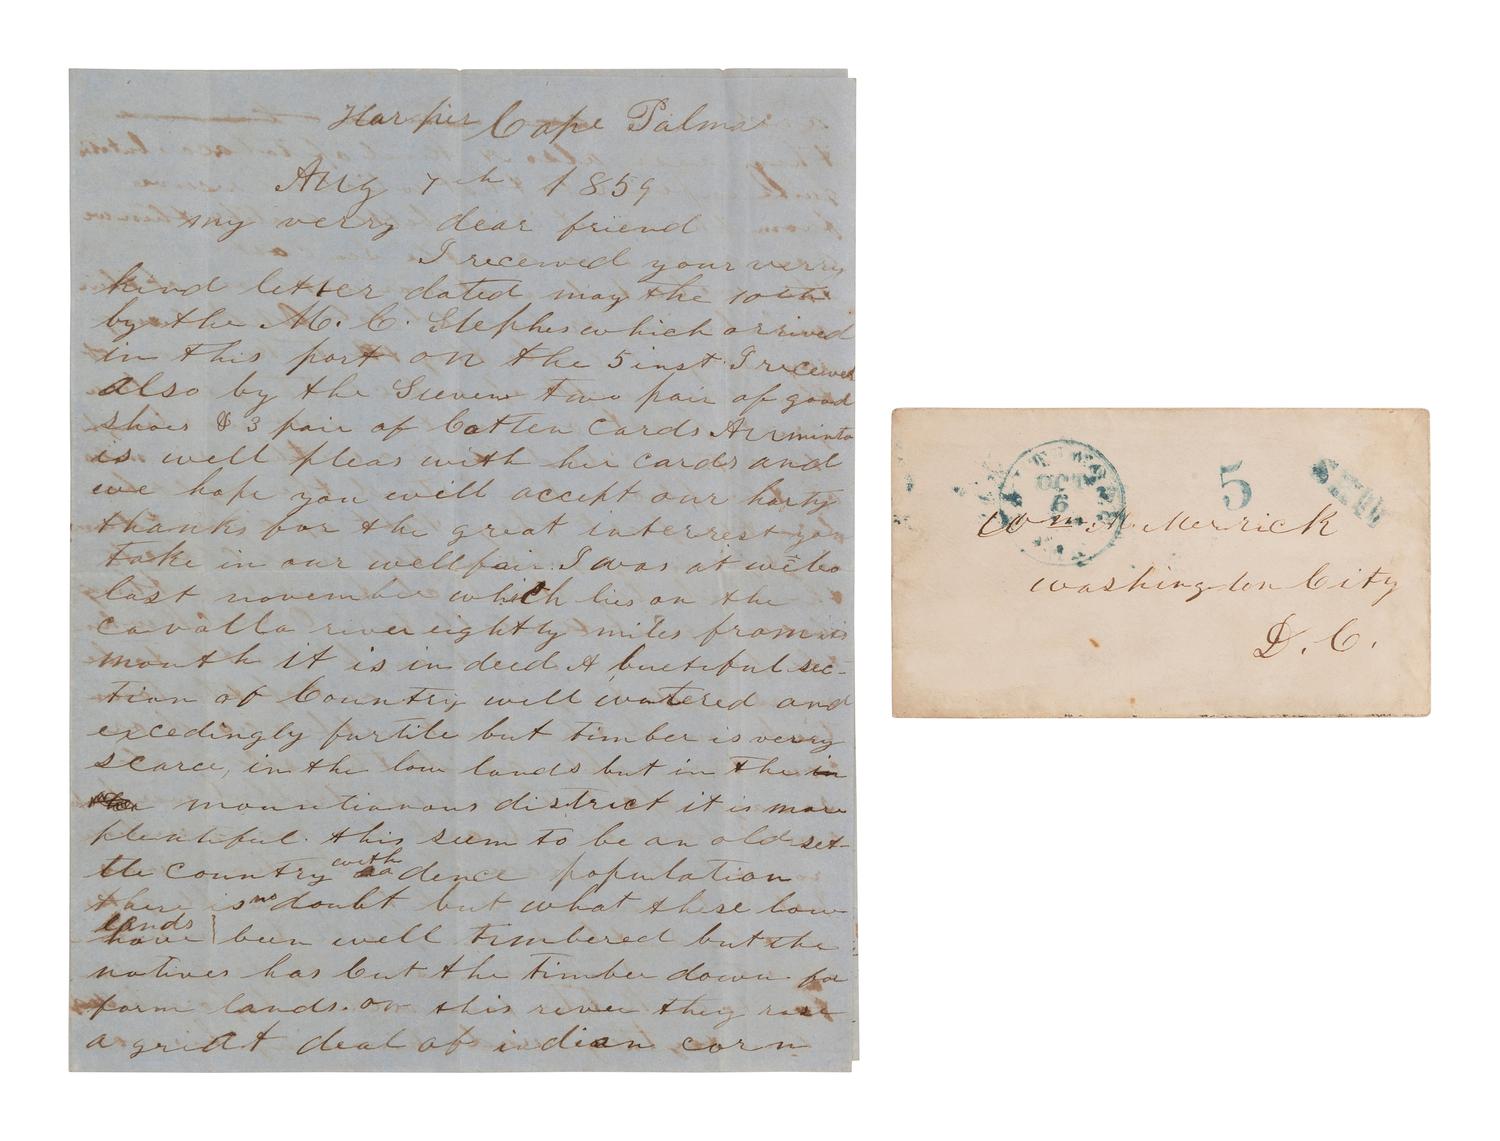 Harper Cape Palmas
Aug 7th 1859
my verry dear friend
I received your verry
kind letter dated may the 10th
by the M. C. Stephes which arrived
in this port on the 5 inst. I received
also by the Steven two pair of good
shoes & 3 pair of Cotten Cards Arminta
is well pleas with her cards and
we hope you will accept our harty
thanks for the great interrest you
take in our wellfair. I was at webo
last november which lies on the
cavalla river eightly miles from its
mouth it is in deed A buetiful sec-
tion of Country well watered and
excedingly furtile but timber is verry
scarce, in the low lands but in the in
the mountianous district it is more
plentiful. this seem to be an old set-
tle country with a dence population
there is no doubt but what these low
lands
have been well timbered but the
natives has Cut the timber down for
farm lands. on this river they rase
a gridt deal of indian corn
BALTIMORE
OCT
9
5
SHIP
Wm M. Merrick
Washington City
D. C.